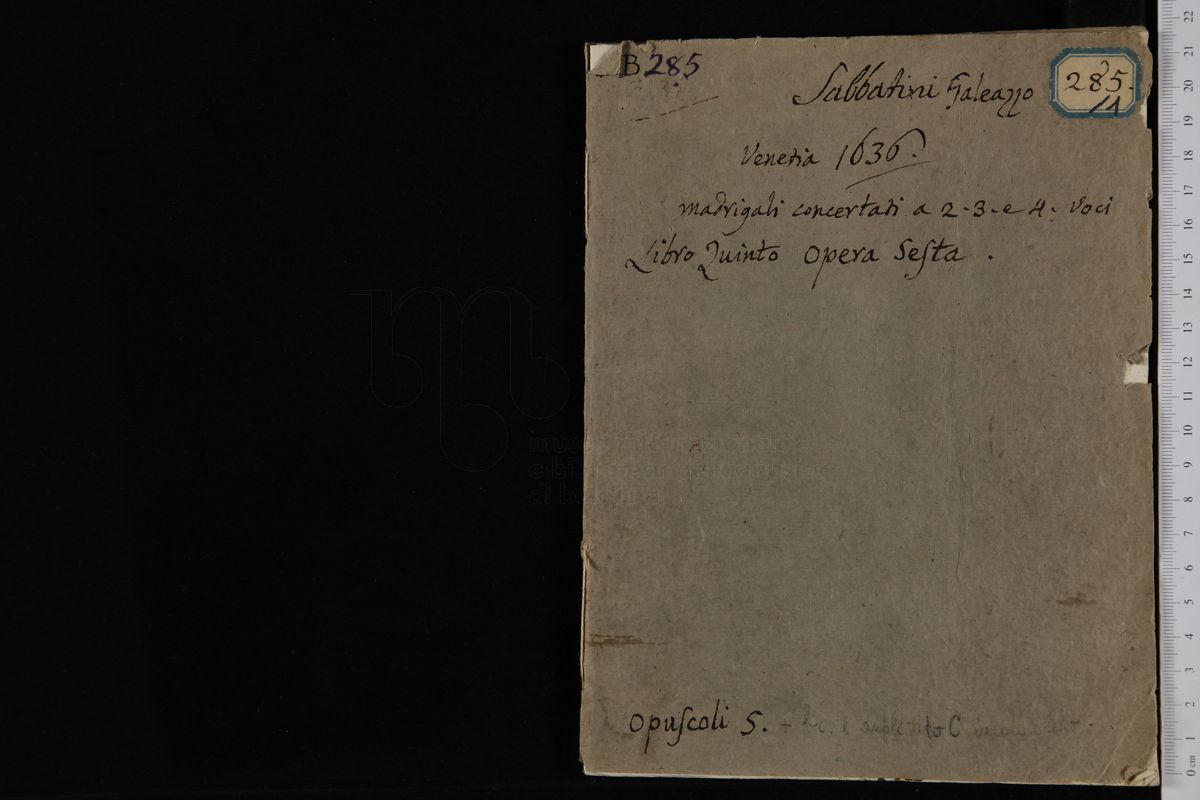 B 285
Sabbatini Galeazzo
285.
Venetia 1636.
madrigali concertati a 2. 3. e 4. Voci
Libro Quinto Opera Sesta .
museo
e bi
di bologna
Opuscoli 5. + C
22 21 20 19 18 17 16 15 14 13 12 11 10 9 8 7 6 5 4 3 2 1 0 cm